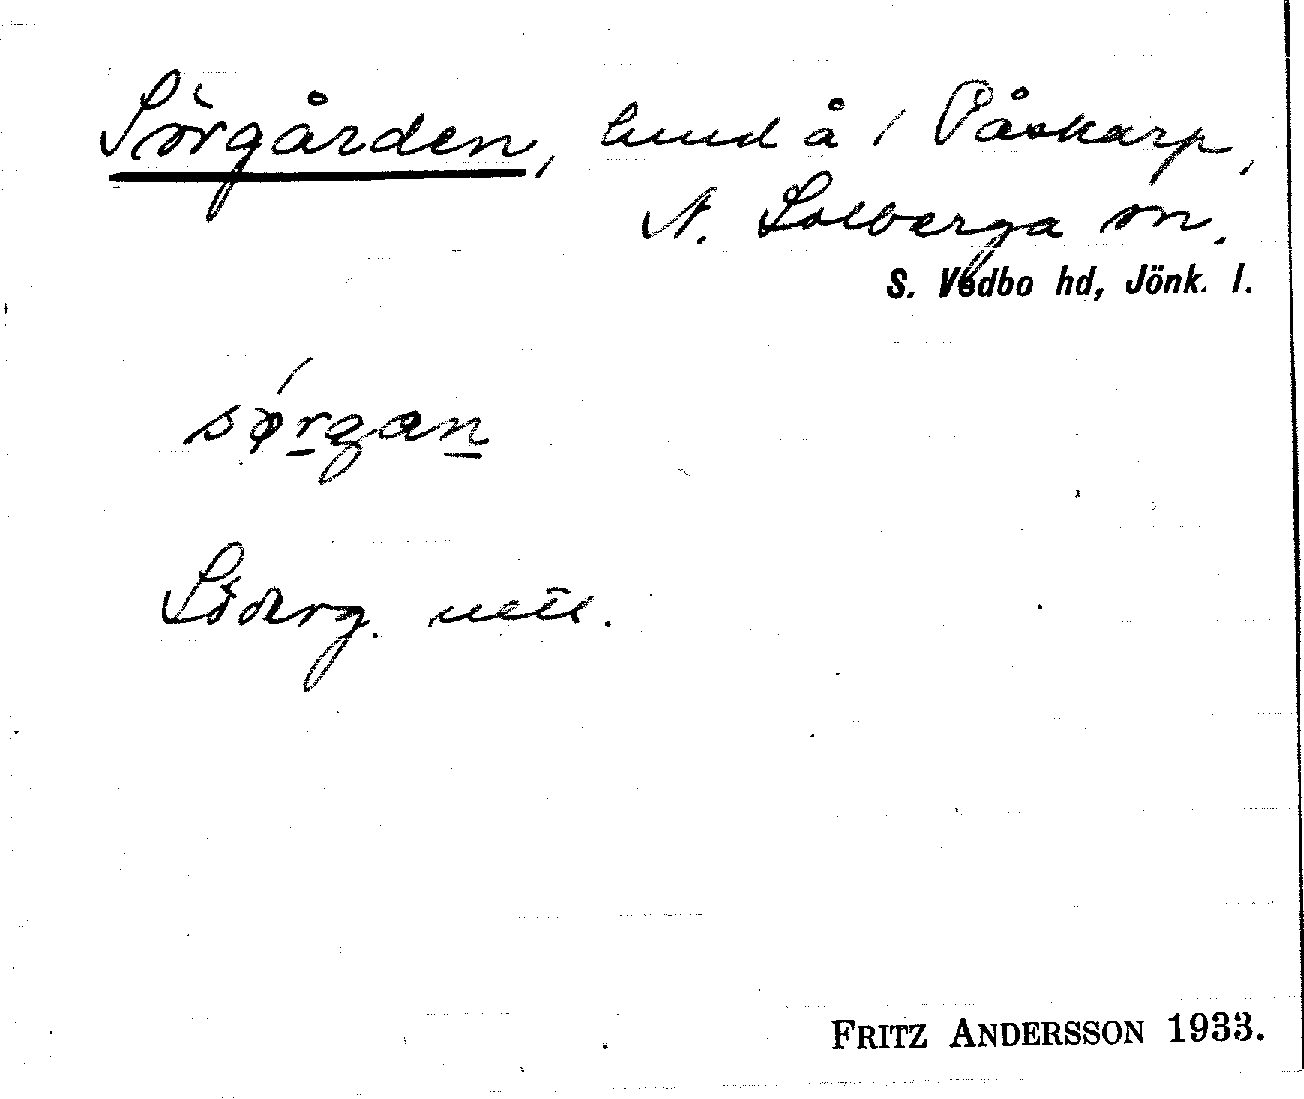 Sörgården, hmd å 1 Påskarp,
N. Solberga sn.
S. Vedbo hd, Jönk. l.
sø´rgan
Söderg.
FRITZ ANDERSSON 1933.